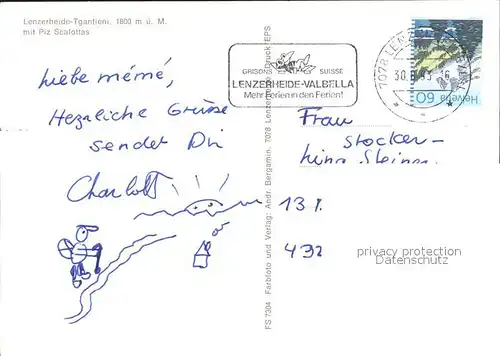 Lenzerheide-Tgantieni, 1800 m ü. M.
mit Piz Scalottas
Liebe mémé,
Herzliche Grüsse
sendet Dir
Charlott
FS 7304 Farbfoto und Verlag: Andr. Bergamin, 7078 Lenzerheide Druck EPS
GRISONS SUISSE
LENZERHEIDE-VALBELLA
Mehr Ferien in den Ferien!
7078 LENZ
30.8.93 16
Helvetia 60
Frau
Stocker-
13
432
privacy protection
Datenschutz